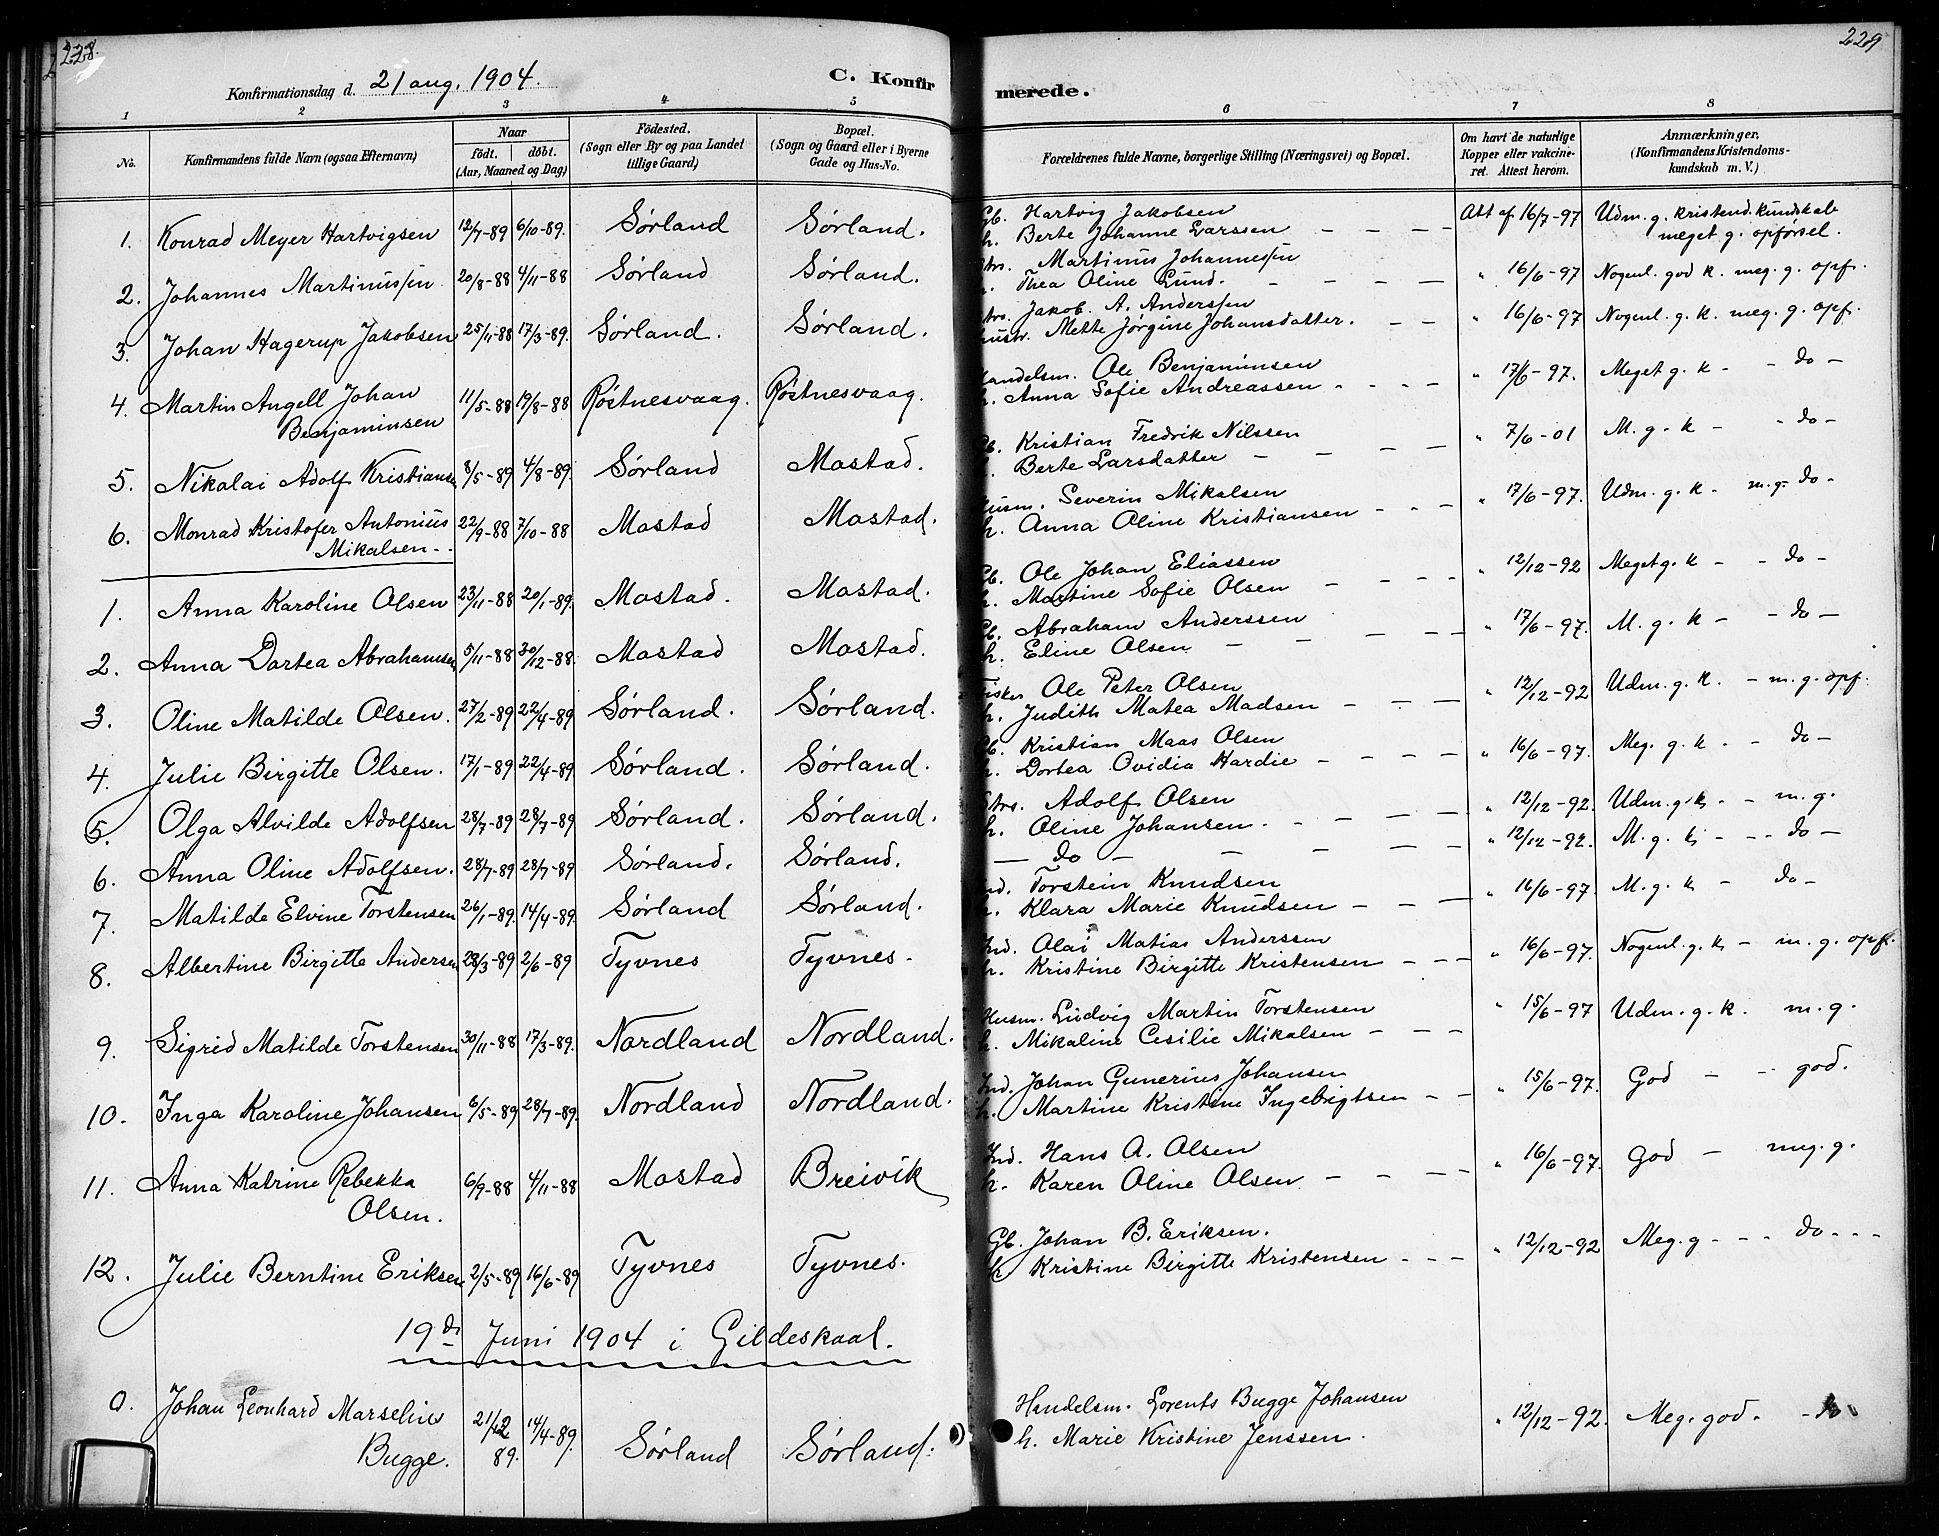 228.
229
Konfirmationsdag d. 21 aug. 1904.
C. Konfirmerede.
1 2 3 4 5 6 7 8
No.
Konfirmandens fulde Navn (ogsaa Efternavn)
Naar
født. døbt.
(Aar, Maaned og Dag)
Fødested.
(Sogn eller By og paa Landet
tillige Gaard)
Bopæl.
(Sogn og Gaard eller i Byerne
Gade og Hus-No.
Forældrenes fulde Navne, borgerlige Stilling (Næringsvei) og Bopæl.
Om havt de naturlige
Kopper eller vakcine-
ret. Attest herom.
Anmærkninger,
(Konfirmandens Kristendoms-
kundskab m. V.)
1. Konrad Meyer Hartvigsen 12/7-89 6/10-89. Sørland Sørland. Gb. Hartvig Jakobsen
h. Berte Johanne Larssen — Att af 16/7-97 Udm. g. kristend. kundskab
meget g. opførsel.
2. Johannes Martinussen 20/8-88 4/11-88 Sørland Sørland. Martinus Johannessen
h. Thea Oline Lund. " 16/6-97 Nogenl. god k. meg. g. opf.
3. Johan Hagerup Jakobsen 25/11-88 17/3-89. Sørland. Sørland. Jakob. A. Anderssen
Mette Jørgine Johansdatter. " 16/6-97 Nogenl. g. k. meg. g. opf.
4. Martin Angell Johan
Benjaminsen 11/5-88 19/8-88 Røstnesvaag. Røstnesvaag. Handelsm. Ole Benjaminsen
h. Anna Sofie Andreassen " 17/6-97. Meget g. k - - do -
5. Nikolai Adolf Kristiansen 8/5-89 4/8-89. Sørland Mostad. Gb. Kristian Fredrik Nilssen
h. Berte Larsdatter " 7/6-01 M. g. k - - do -
6. Monrad Kristofer Antonius
Mikalsen - - 22/9-88 7/10-88 Mostad Mostad. Husm. Severin Mikalsen
h. Anna Oline Kristiansen " 17/6-97. Udm. g. k. m.g. do -
1. Anna Karoline Olsen 23/11-88 20/1-89. Mostad. Mostad. Gb. Ole Johan Eliassen
h. Martine Sofie Olsen " 12/12-92 Meget g. k - - do -
2. Anna Dortea Abrahamsen 5/11-88 30/12-88. Mostad Mostad. Gb. Abraham Anderssen
h. Eline Olsen " 17/6-97. M. g. k - - do -
3. Oline Matilde Olsen. 27/2-89 22/4-89 Sørland. Sørland. Fisker Ole Peter Olsen
h. Judith Matea Madsen " 12/12-92 Udm. g. k. - m. g. opf.
4. Julie Birgitte Olsen. 17/1-89 22/4-89 Sørland. Sørland. Gb. Kristian Maas Olsen
h. Dortea Ovidia Hardie " 16/6-97. Meg. g. k. - do -
5. Olga Alvilde Adolfsen 28/7-89 28/7-89 Sørland. Sørland. Strs. Adolf Olsen
h. Oline Johansen " 12/12-92 Udm. g. k. - m. g.
6. Anna Oline Adolfsen. 28/7-89 28/7-89 Sørland. Sørland. — do — " 12/12-92. M. g. k - - do -
7. Matilde Elvine Torstensen 26/1-89. 14/4-89. Sørland Sørland. Ind. Torstein Knudsen
h. Klara Marie Knudsen " 16/6-97. M. g. k - do -
8. Albertine Birgitte Andersen 28/3-89 2/6-89 Tyvnes Tyvnes. Ind. Olai Matias Anderssen
h. Kristine Birgitte Kristensen " 16/6-97. Nogenl. g. k - m. g. opf.
9. Sigrid Matilde Torstensen 30/11-88 17/3-89. Nordland Nordland. Husm. Ludvig Martin Torstensen
h. Mikaline Cesilie Mikalsen " 15/6-97 Udm. g. k. m. g.
10. Inga Karoline Johansen 6/5-89 28/7-89. Nordland Nordland. Ind. Johan Gunerius Johansen
h. Martine Kristine Ingebrigtsen " 15/6-97. God - - god.
11. Anna Katrine Rebekka
Olsen. 6/9-88 4/11-88 Mostad Breivik Ind. Hans A. Olsen
h. Karen Oline Olsen " 16/6-97. God - meg. g.
12. Julie Berntine Eriksen 2/5-89 16/6-89 Tyvnes Tyvnes. Gb. Johan B. Eriksen.
h Kristine Birgitte Kristensen " 12/12-92 Meg. g - - - do - - -
19de Juni 1904 i Gildeskaal.
0. Johan Leonhard Marselius
Bugge. 21/12 89. 14/4-89. Sørland Sørland. Handelsm. Lorents Bugge Johansen
h. Marie Kristine Jenssen. " 12/12-92. Meg. god. - do